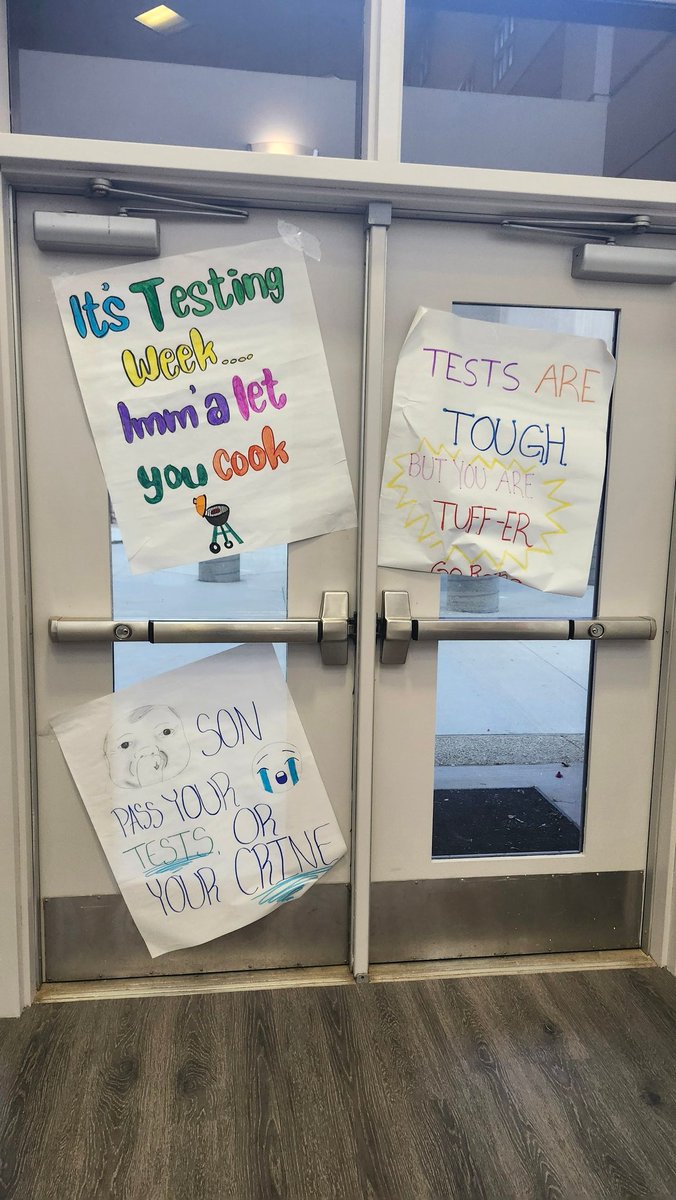 It's Testing
Week....
Imm'a let
you cook
TESTS ARE
TOUGH
BUT YOU ARE
TUFF-ER
GO
SON
PASS YOUR
TESTS, OR
YOUR CRINE